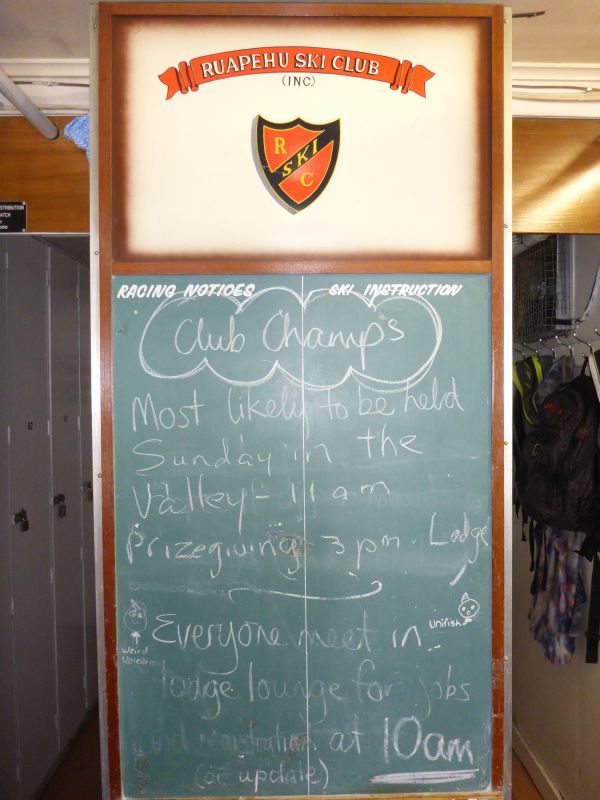 RUAPEHU SKI CLUB
(INC)
R
SKI
C
RACING NOTICES SKI INSTRUCTION
Club Champs
Most likely to be held
Sunday in the
Valley - 11 am
Prizegiving 3 pm. Lodge
Everyone meet in
Unifish
Weird
lodge lounge for jobs
and registration at 10am
(or update)